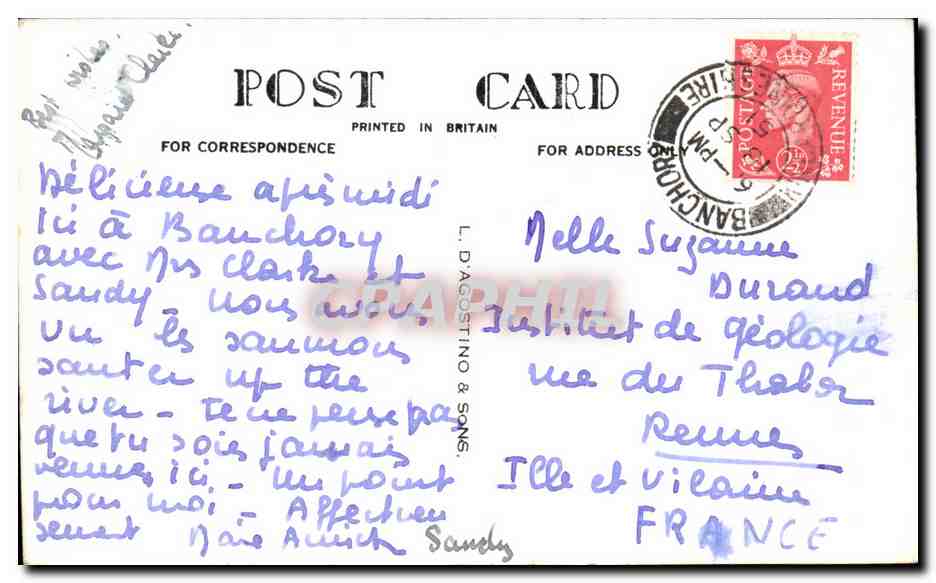 Best wishes.
Clark.
POST CARD
PRINTED IN BRITAIN
FOR CORRESPONDENCE
FOR ADDRESS ONLY
POSTAGE
REVENUE
2½D
BANCHORY
6 - PM
13 SP
51
Délicieuse après midi
Ici à Banchory
avec Mrs Clark et
Sandy - nous avons
vu les saumons
sauter up the
river - Je ne pense pas
que tu sois jamais
venue ici - Un point
pour moi - Affectueu
sement
Sandy
L. D'AGOSTINO & SONS.
CPAPHIL
Melle Suzanne
Durand
Institut de géologie
rue du Thabor
Rennes
Ille et Vilaine
FRANCE